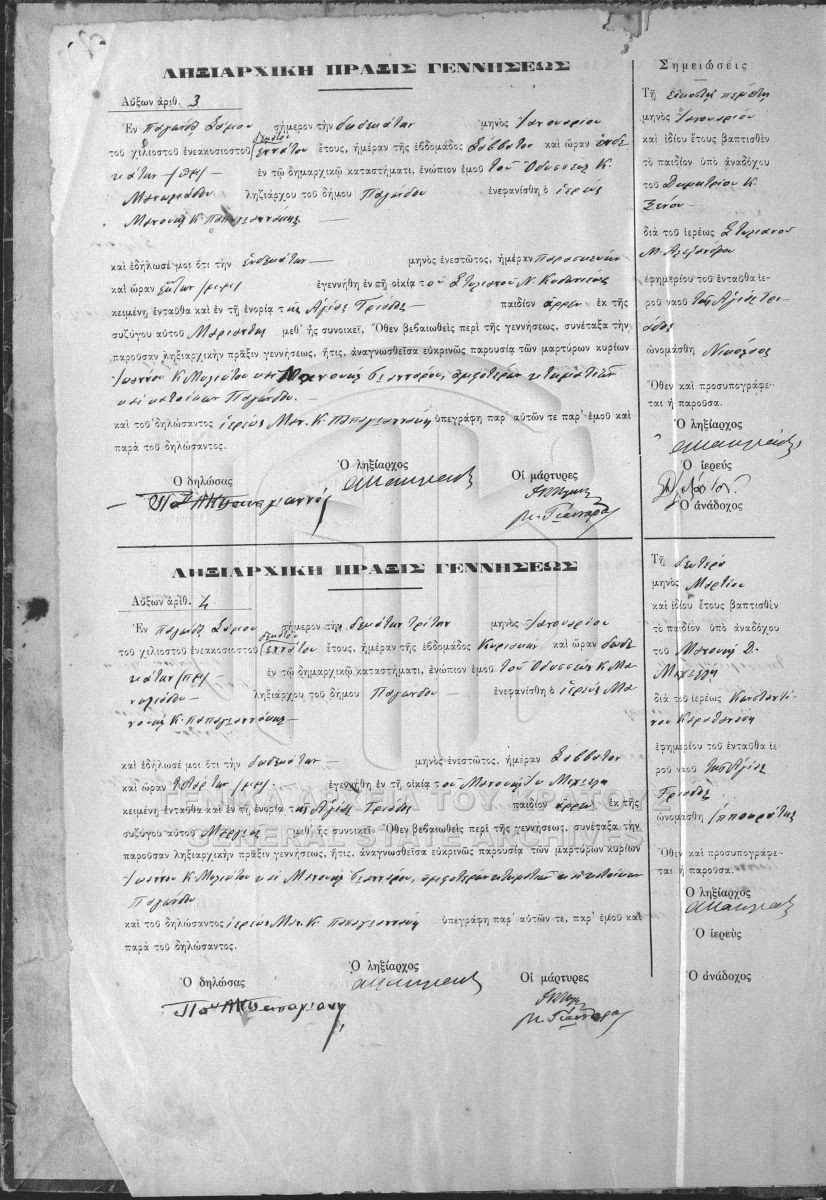 ΛΗΞΙΑΡΧΙΚΗ ΠΡΑΞΙΣ ΓΕΝΝΗΣΕΩΣ
Αὔξων ἀριθ. 3
Ἐν Παγώνδᾳ Σάμου σήμερον τὴν δωδεκάτην μηνὸς Ἰανουαρίου
τοῦ χιλιοστοῦ ἐνεακοσιοστοῦ δεκάτου ἐννάτου ἔτους, ἡμέραν τῆς ἑβδομάδος Σάββατον καὶ ὥραν ἑνδε
κάτην /πμ/ ἐν τῷ δημαρχικῷ καταστήματι, ἐνώπιον ἐμοῦ τοῦ Ὀδυσσέως Κ.
ληξιάρχου τοῦ δήμου Παγώνδου ἐνεφανίσθη ὁ ἱερεὺς
Μανουὴλ Κ. Παπαγιαννάκης
καὶ ἐδήλωσέ μοι ὅτι τὴν ἑνδεκάτην μηνὸς ἐνεστῶτος, ἡμέραν Παρασκευὴν
καὶ ὥραν ἕκτην /μμ/ ἐγεννήθη ἐν τῇ οἰκίᾳ τοῦ Στυλιανοῦ Ν.
κειμένῃ ἐνταῦθα καὶ ἐν τῇ ἐνορίᾳ τῆς Ἁγίας Τριάδος παιδίον ἄρρεν ἐκ τῆς
συζύγου αὐτοῦ Μαριάνθης μεθ' ἧς συνοικεῖ, Ὅθεν βεβαιωθεὶς περὶ τῆς γεννήσεως, συνέταξα τὴν
παροῦσαν ληξιαρχικὴν πρᾶξιν γεννήσεως, ἥτις, ἀναγνωσθεῖσα εὐκρινῶς παρουσίᾳ τῶν μαρτύρων κυρίων
Ἰωάννου Κ. καὶ Μανουὴλ Γιανναροῦ, ἀμφοτέρων κτηματιῶν
καὶ κατοίκων Παγώνδου.
καὶ τοῦ δηλώσαντος ἱερέως Μαν. Κ. Παπαγιαννάκη ὑπεγράφη παρ' αὐτῶν τε παρ' ἐμοῦ καὶ
παρὰ τοῦ δηλώσαντος.
Ὁ δηλώσας
Ὁ ληξίαρχος
Οἱ μάρτυρες
Σημειώσεις
Τῇ εἰκοστῇ πέμπτῃ
μηνὸς Ἰανουαρίου
καὶ ἰδίου ἔτους βαπτισθὲν
τὸ παιδίον ὑπὸ ἀναδόχου
τοῦ Δημητρίου Κ.
Ξένου
διὰ τοῦ ἱερέως Στυλιανοῦ
Μ. Ἀλεξάνδρου
ἐφημερίου τοῦ ἐνταῦθα ἱε-
ροῦ ναοῦ τῆς Ἁγίας Τρι
άδος
ὠνομάσθη Νικόλαος
Ὅθεν καὶ προσυπογράφε-
ται ἡ παροῦσα.
Ὁ ληξίαρχος
Ὁ ἱερεύς
Ὁ ἀνάδοχος
ΛΗΞΙΑΡΧΙΚΗ ΠΡΑΞΙΣ ΓΕΝΝΗΣΕΩΣ
Αὔξων ἀριθ. 4
Ἐν Παγώνδᾳ Σάμου σήμερον τὴν δεκάτην τρίτην μηνὸς Ἰανουαρίου
τοῦ χιλιοστοῦ ἐνεακοσιοστοῦ δεκάτου ἐννάτου ἔτους, ἡμέραν τῆς ἑβδομάδος Κυριακὴν καὶ ὥραν δωδε
κάτην /πμ/ ἐν τῷ δημαρχικῷ καταστήματι, ἐνώπιον ἐμοῦ τοῦ Ὀδυσσέως Κ.
ληξιάρχου τοῦ δήμου Παγώνδου ἐνεφανίσθη ὁ ἱερεὺς Μα
νουὴλ Κ. Παπαγιαννάκης
καὶ ἐδήλωσέ μοι ὅτι τὴν δωδεκάτην μηνὸς ἐνεστῶτος, ἡμέραν Σάββατον
καὶ ὥραν τετάρτην /μμ/ ἐγεννήθη ἐν τῇ οἰκίᾳ τοῦ Μανουὴλ
κειμένῃ ἐνταῦθα καὶ ἐν τῇ ἐνορίᾳ τῆς Ἁγίας Τριάδος παιδίον ἄρρεν ἐκ τῆς
συζύγου αὐτοῦ μεθ' ἧς συνοικεῖ. Ὅθεν βεβαιωθεὶς περὶ τῆς γεννήσεως, συνέταξα τὴν
παροῦσαν ληξιαρχικὴν πρᾶξιν γεννήσεως, ἥτις, ἀναγνωσθεῖσα εὐκρινῶς παρουσίᾳ τῶν μαρτύρων κυρίων
Ἰωάννου Κ. καὶ Μανουὴλ Γιανναροῦ, ἀμφοτέρων κτηματιῶν καὶ κατοίκων
Παγώνδου
καὶ τοῦ δηλώσαντος ἱερέως Μαν. Κ. Παπαγιαννάκη ὑπεγράφη παρ' αὐτῶν τε, παρ' ἐμοῦ καὶ
παρὰ τοῦ δηλώσαντος.
Ὁ δηλώσας
Ὁ ληξίαρχος
Οἱ μάρτυρες
Τῇ δευτέρᾳ
μηνὸς Μαρτίου
καὶ ἰδίου ἔτους βαπτισθὲν
τὸ παιδίον ὑπὸ ἀναδόχου
τοῦ Μανουὴλ Δ.
διὰ τοῦ ἱερέως Κωνσταντί
νου Καραθανάση
ἐφημερίου τοῦ ἐνταῦθα ἱε-
ροῦ ναοῦ τῆς Ἁγίας
Τριάδος
ὠνομάσθη Ἱπποκράτης
Ὅθεν καὶ προσυπογράφε-
ται ἡ παροῦσα.
Ὁ ληξίαρχος
Ὁ ἱερεὺς
Ὁ ἀνάδοχος
ΓΕΝΙΚΑ ΑΡΧΕΙΑ ΤΟΥ ΚΡΑΤΟΥΣ
GENERAL STATE ARCHIVES